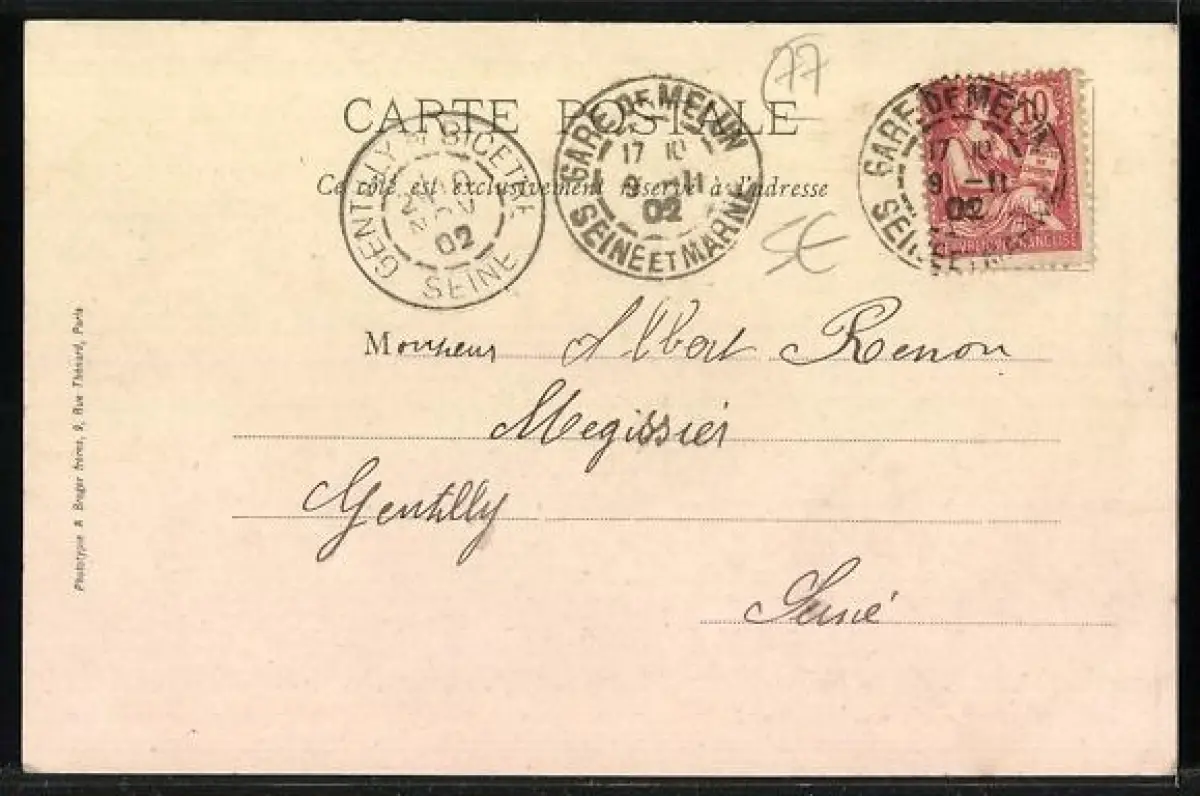 77
CARTE POSTALE
Ce côté est exclusivement réservé à l'adresse
GENTILLY-BICETRE
02
SEINE
GARE DE MELUN
17
9 -11
02
SEINE ET MARNE
GARE DE MELUN
17
9 -11
02
10
5€
Monsieur Albert Renon
Megissier
Gentilly
Seine
Phototypie A. Breger frères, 9, Rue Thénard, Paris